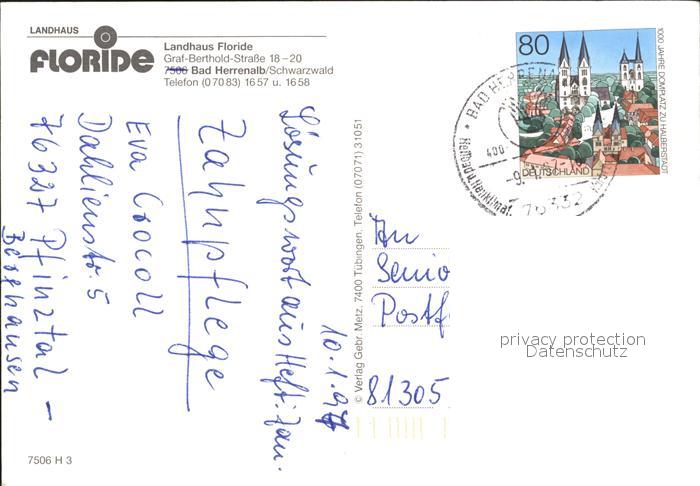 LANDHAUS
FLORIDE
Landhaus Floride
Graf-Berthold-Straße 18–20
7506 Bad Herrenalb/Schwarzwald
Telefon (07083) 1657 u. 1658
80
1000 JAHRE DOMPLATZ ZU HALBERSTADT
DEUTSCHLAND
BAD HERRENA
76332
Lösungswort aus Heft: Jan.
10.1.97
Zahnpflege
Eva Crocoll
Dahlienstr. 5
76327 Pfinztal –
Berghausen
© Verlag Gebr. Metz, 7400 Tübingen, Telefon (07071) 31051
An
Senio
Postf
81305
privacy protection
Datenschutz
7506 H 3